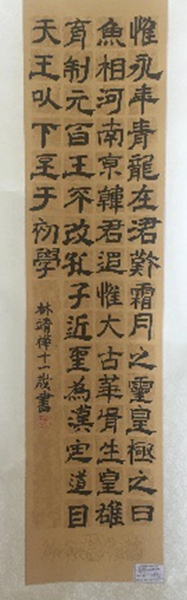 惟永年青龍在涒歎霜月之靈皇極之日
魚相河南京韓君追惟大古華胥生皇雄
育制元百王不改孔子近聖為漢定道自
天王以下至于初學
林靖樺十一歲書